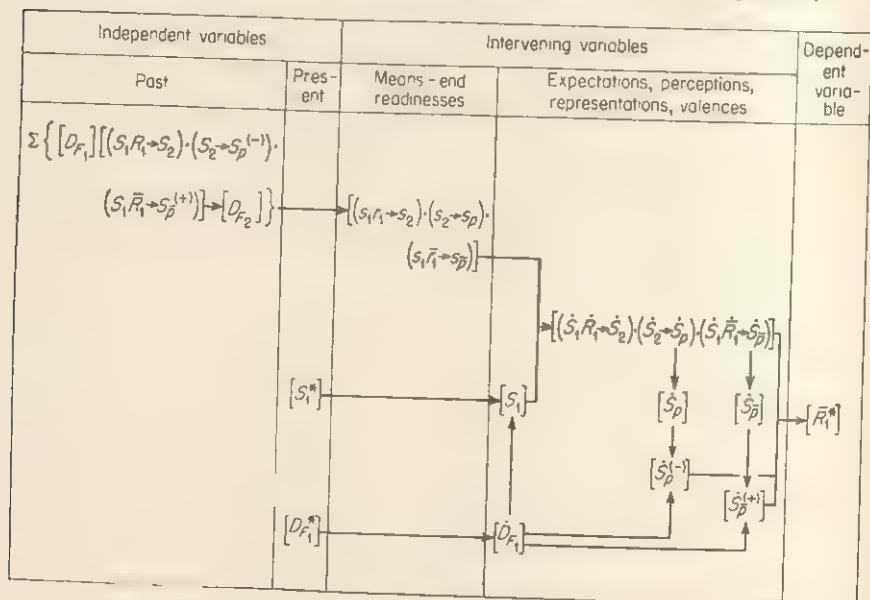 Independent variables
Intervening variables
Depend-
ent
varia-
ble
Past
Pres-
ent
Means-end
readinesses
Expectations, perceptions,
representations, valences
Σ{[D_F₁][(S₁R₁→S₂)·(S₂→S_p⁽⁻⁾)·
(S₁R̄₁→S_p̄⁽⁺⁾)]→[D_F₂]}
[(s₁r₁→s₂)·(s₂→s_p)·
(s₁r̄₁→s_p̄)]
[(Ṡ₁Ṙ₁→Ṡ₂)·(Ṡ₂→Ṡ_p)·(Ṡ₁Ṙ̄₁→Ṡ_p̄)]
[S₁*]
[S₁]
[Ṡ_p]
[Ṡ_p̄]
[R̄₁*]
[Ṡ_p⁽⁻⁾]
[Ṡ_p̄⁽⁺⁾]
[D_F₁*]
[Ḋ_F₁]